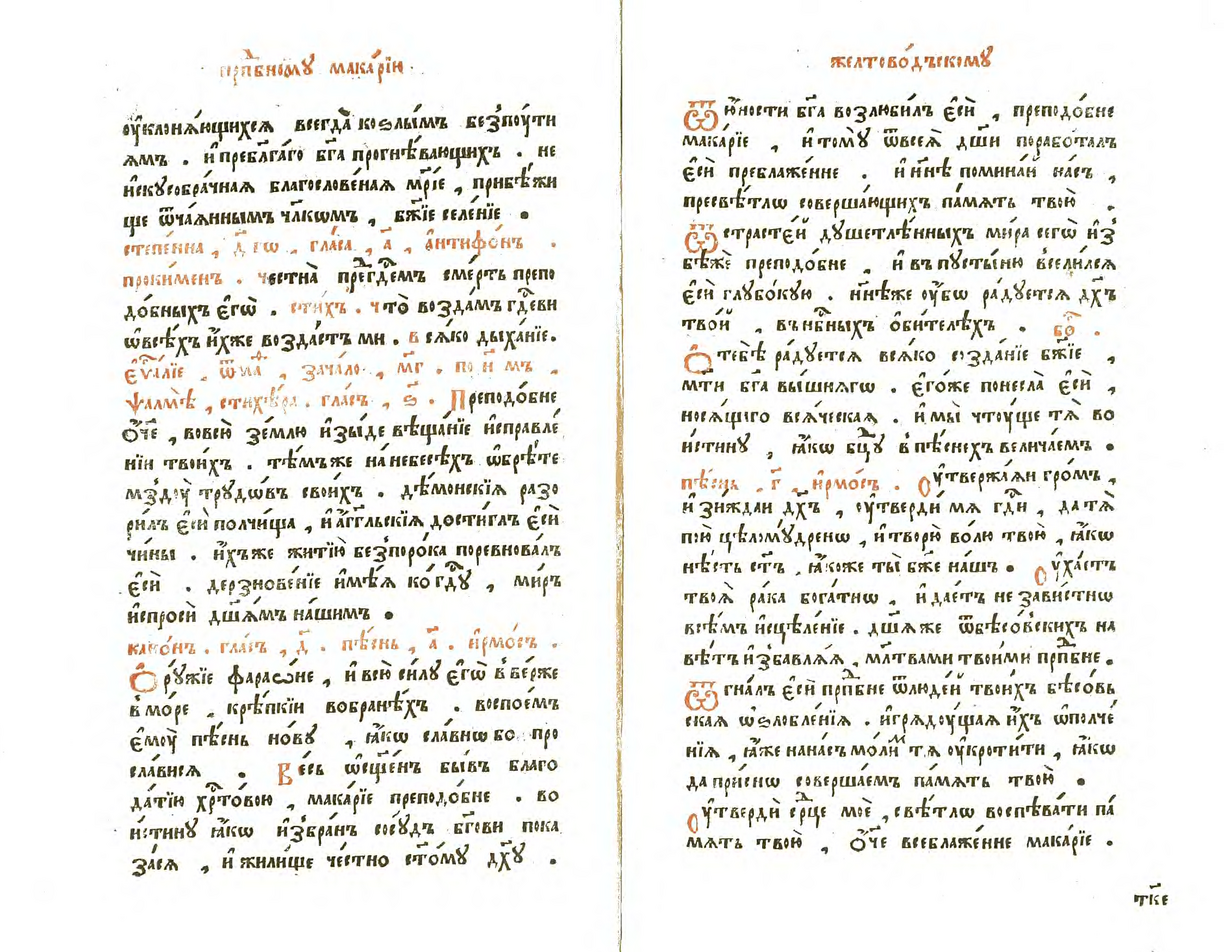 прпⷣбному мака́рїю
ᲂу҆клонѧ́ющихсѧ всегда̀ коѕлы́мъ безпꙋти
ѧмъ . и҆ пребл҃га́го бг҃а прогнѣ́вающихъ . не
и҆скꙋсобра́чнаѧ благослове́наѧ мр҃їе , прибѣ́жи
ще ѿча́ѧннымъ чл҃кѡмъ , бж҃їе селе́нїе .
степе́нна , д҃ ѡ , гла́са , а҃ , а҆нтифо́нъ .
проки́менъ . честна̀ преⷣ гдⷭ҇емъ сме́рть препо
до́бныхъ є҆гѡ̀ . сти́хъ . что̀ возда́мъ гдⷭ҇еви
ѡ҆ всѣ́хъ и҆́хже возда́стъ ми . всѧ́ко дыха́нїе .
є҆ѵⷢ҇а́лїе . ѿ мⷦ҇а , зача́ло , мг҃ . по н҃ мъ ,
ѱалмѣ̀ , стихѣ́ра . гла́съ , ѕ҃ . Преподо́бне
ѻ҆́ч҃е , вовсю̀ зе́млю и҆зы́де вѣща́нїе и҆справле́
нїи твои́хъ . тѣ́мъже нанебесѣ́хъ ѡ҆брѣ́те
мздꙋ̀ трꙋдѡ́въ свои́хъ . де́монскїѧ разо
ри́лъ є҆сѝ полчища , и҆ а҆́гг҃льскїѧ дости́глъ є҆сѝ
чи́ны . и҆́хъже житїю̀ безпоро́ка поревнова́лъ
є҆сѝ . дерзнове́нїе и҆мѣ́ѧ ко гдⷭ҇ꙋ , ми́ръ
и҆спросѝ дш҃а́мъ на́шимъ .
кано́нъ . гла́съ , д҃ . пѣ́снь , а҃ . і҆рмо́съ .
Ѻ҆рꙋ́жїе фараѡ́не , и҆ всю̀ си́лꙋ є҆гѡ̀ вве́рже
вмо́ре , крѣ́пкїи вобране́хъ . воспое́мъ
є҆мꙋ̀ пѣ́снь но́вꙋ , ꙗ҆́кѡ сла́внѡ бо про
сла́висѧ . Ве́сь ѡ҆сщ҃е́нъ бы́въ благо
да́тїю хрⷭ҇то́вою , мака́рїе преподо́бне . во
и́стинꙋ ꙗ҆́кѡ и҆збра́нъ сосꙋ́дъ бг҃ови пока
за́сѧ , и҆ жили́ще че́стно ст҃о́мꙋ дх҃ꙋ .
желтово́дъскомꙋ
Ѿ ю҆́ности бг҃а возлюби́лъ є҆сѝ , преподо́бне
мака́рїе , и҆ томꙋ̀ ѿ всеѧ̀ дш҃и порабо́талъ
є҆сѝ преблаже́нне . и҆ нн҃ѣ помина́й на́съ ,
пресвѣ́тлѡ соверша́ющихъ па́мѧть твою̀ .
Ѿ страсте́й дꙋшетлѣ́нныхъ ми́ра сегѡ̀ и҆з
бѣ́же преподо́бне , и҆ въ пꙋсты́ню всели́лсѧ
є҆сѝ глꙋбо́кꙋю . нн҃ѣже ᲂу҆́бѡ ра́дꙋетсѧ дх҃ъ
тво́й , въ нбⷭ҇ныхъ ѻ҆би́телѣхъ . бо҃ .
Ѻ҆ тебѣ̀ ра́дꙋетсѧ всѧ́ко созда́нїе бж҃їе ,
мт҃и бг҃а вы́шнѧгѡ . є҆го́же понесла̀ є҆сѝ ,
носѧ́щїго всѧ́ческаѧ . и҆ мы̀ чтꙋще тѧ̀ во
и́стинꙋ , ꙗ҆́кѡ бцⷣꙋ впѣ́снехъ велича́емъ .
пѣ́снь , г҃ , і҆рмо́съ . Оу҆твержда́ѧи гро́мъ ,
и҆ зи́ждаи дх҃ъ , ᲂу҆твердѝ мѧ гдⷭ҇и , да тѧ̀
пою̀ цѣломꙋ́дренѡ , и҆ творю̀ во́лю твою̀ , ꙗ҆́кѡ
нѣ́сть ст҃ъ , ꙗ҆́коже ты̀ бж҃е на́шъ . Оу҆ха́етъ
твоѧ̀ ра́ка бога́тнѡ , и҆ дае́тъ незави́стнѡ
всѣ́мъ и҆сцѣле́нїе . дш҃аже ѿ бѣсо́вскихъ на
вѣ́тъ и҆збавлѧ́ѧ , мл҃твами твои́ми прпⷣбне .
Ѿгна́лъ є҆сѝ прпⷣбне ѿ люде́й твои́хъ бѣсо́вь
скаѧ ѡ҆ѕлобле́нїѧ . и҆ грѧдꙋ́щаѧ и҆́хъ ѡ҆полче́
нїѧ , ꙗ҆́же нана́съ мо́лимъ тѧ ᲂу҆кроти́ти , ꙗ҆́кѡ
да при́снѡ соверша́емъ па́мѧть твою̀ .
Оу҆твердѝ срⷣце моѐ , свѣ́тлѡ воспѣва́ти па́
мѧть твою̀ , ѻ҆́ч҃е всеблаже́нне мака́рїе .
тк҃е